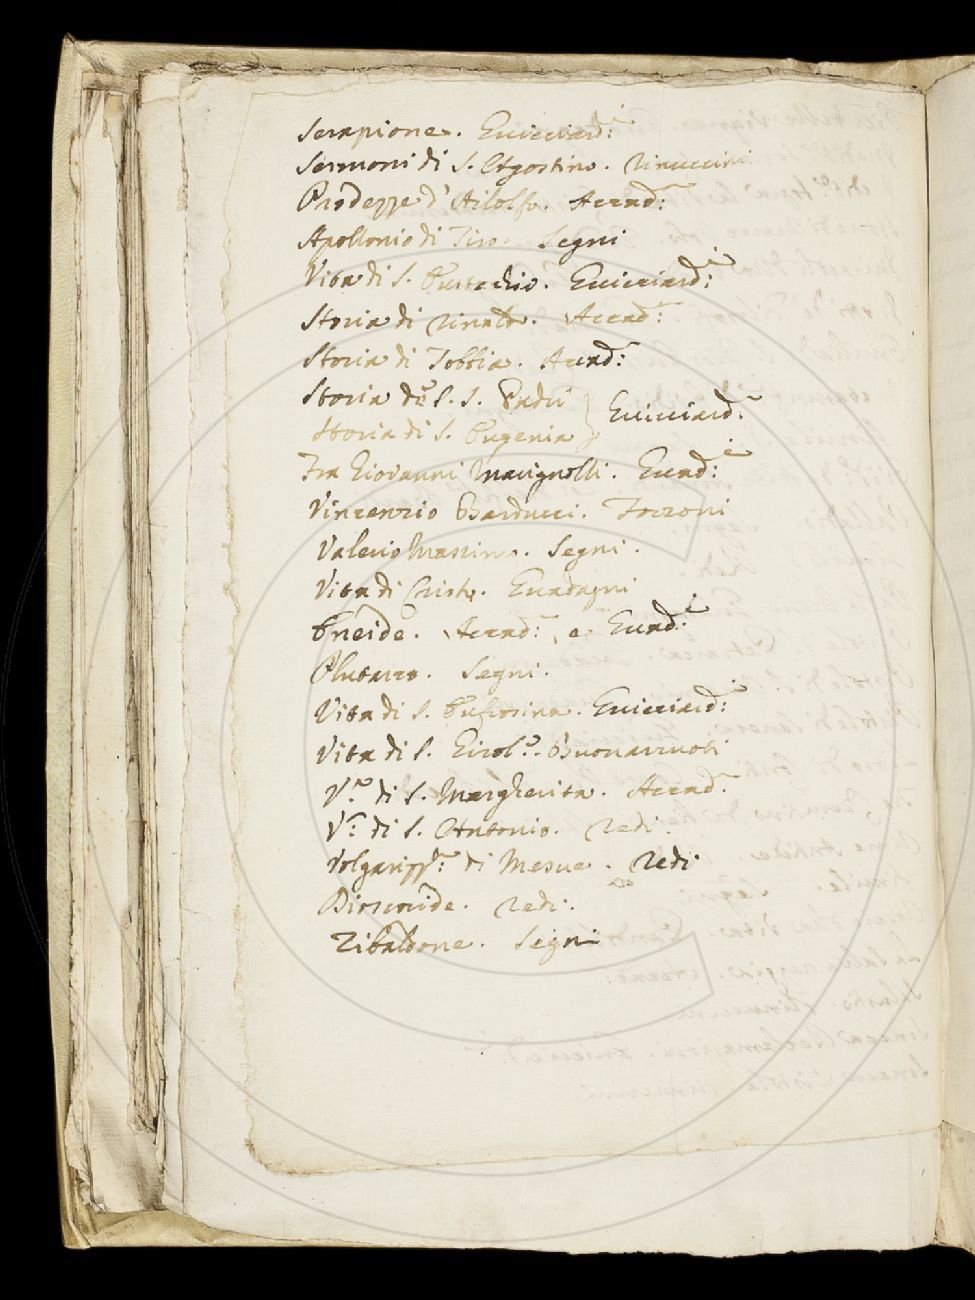 Serapione. Guicciard:i
Sermoni di S. Agostino. Rinuccini
Prodezze d'Ailolfo. Accad:
Apollonio di Tiro. Segni
Vita di S. Eustachio. Guicciard:i
Storia di Rinaldo. Accad:
Storia di Tobbia. Accad:
Storia de S. S. Padri
Storia di S. Eugenia } Guicciard:i
Fra Giovanni Marignolli. Guad:i
Vincenzio Barducci. Forzoni
Valerio Massimo. Segni.
Vita di Cristo. Guadagni
Eneide. Accad: e Guad:i
Plutarco. Segni.
Vita di S. Eufrosina. Guicciard:i
Vita di S. Girol.o Buonarruoti
V.a di S. Margherita. Accad.
V.a di S. Antonio. Redi.
Volgarizz. di Mesue. Redi
Dioscoride. Redi.
Zibaldone. Segni